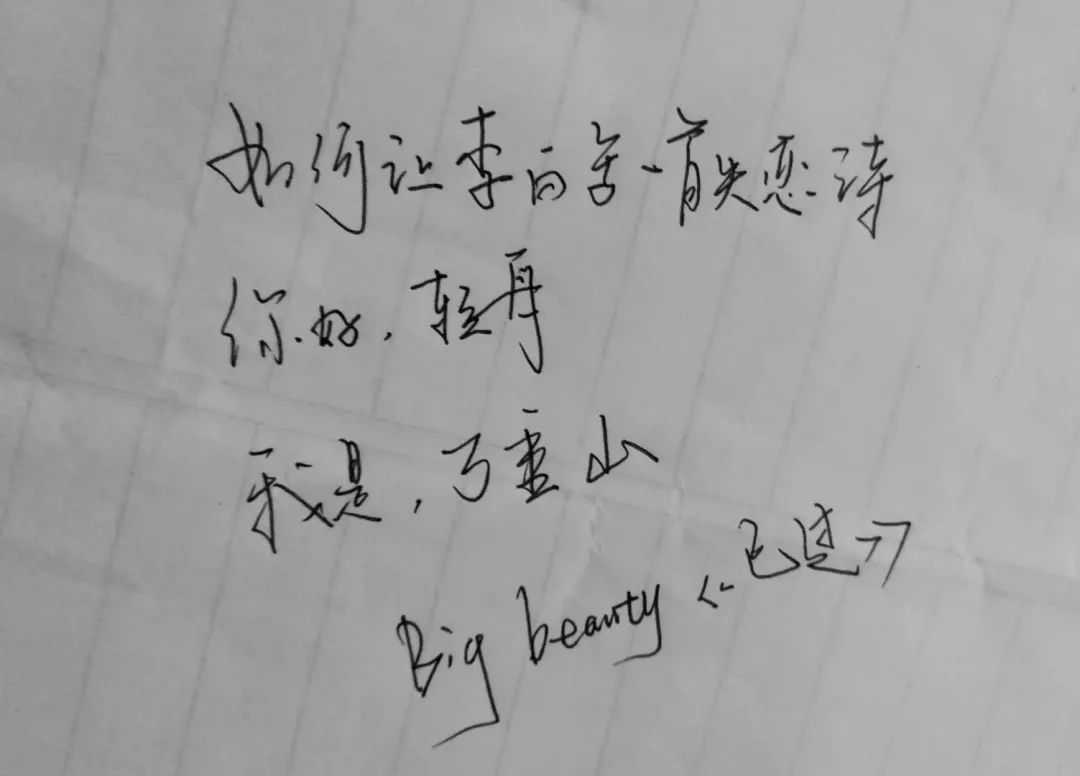 如何让李白写一首失恋诗
你好,轻舟
我是,万重山
Big beauty《已过》